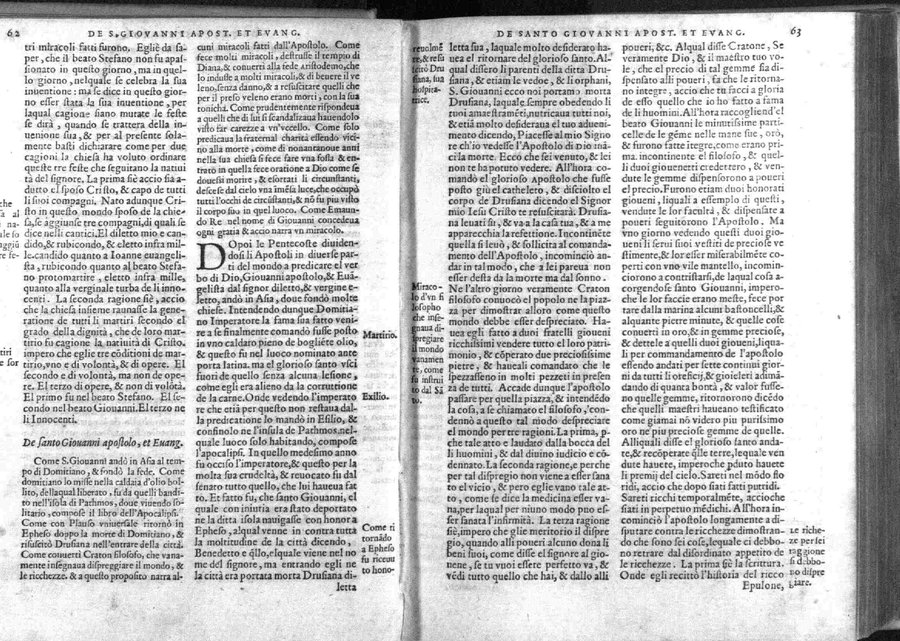 62
DE S. GIOVANNI APOST. ET EVANG.
tri miracoli fatti furono. Egliè da sa-
per, che il beato Stefano non fu apas-
sionato in questo giorno, ma in quel-
lo giorno, nelquale se celebra la sua
inuentione: ma se dice in questo gior-
no esser stata la sua inuentione, per
laqual cagione siano mutate le feste
se dirà, quando se trattera della in-
uentione sua, & per al presente sola-
mente basti dichiarare come per due
cagioni la chiesa ha voluto ordinare
queste tre feste che seguitano la natiui
tà del signore. La prima sie accio sia a-
dutto el sposo Cristo, & capo de tutti
li suoi compagni. Nato adunque Cri-
sto in questo mondo sposo de la chie-
sa, se aggiunse tre compagni, di quali se
dice nelli cantici, El diletto mio e can-
dido, & rubicondo, & eletto infra mil-
le. candido quanto a Ioanne euangeli-
sta, rubicondo quanto al beato Stefa-
no protomartire, eletto infra mille,
quanto alla verginale turba de li inno-
centi. La seconda ragione siè, accio
che la chiesa insieme raunasse la gene-
ratione de tutti li martiri secondo el
grado della dignità, che de loro mar-
tirio fu cagione la natiuità di Cristo,
impero che eglie tre cōditioni de mar-
tirio, vno e di volontà, & di opere. El
secondo e di volontà, ma non de ope-
re. El terzo di opere, & non di volōtà.
El primo fu nel beato Stefano. El se-
condo nel beato Giouanni. El terzo ne
li Innocenti.
De santo Giouanni apostolo, et Euang.
Come S. Giouanni andò in Asia al tem-
po di Domitiano, & fondò la fede. Come
domitiano lo misse nella caldaia d'olio bol-
lito, dellaqual liberato, fu da quelli bandi-
to nell'isola di Pathmos, doue viuendo so-
litario, compose il libro dell'Apocalipsi.
Come con Plauso vniuersale ritornò in
Epheso doppo la morte di Domitiano, &
risuscitò Drusiana nell'entrare della città.
Come conuertì Craton filosofo, che vana-
mente insegnaua dispreggiare il mondo, &
le ricchezze. & a questo proposito narra al-
cuni miracoli fatti dall'Apostolo. Come
fece molti miracoli, destrusse il tempio di
Diana, & conuertì alla fede Aristodemo, che
lo indusse a molti miracoli, & di beuere il ve
leno, senza danno, & a resuscitare quelli che
per il preso veleno erano morti, con la sua
tonicha. Come prudentemente rispondeua
a quelli che di lui si scandalizaua hauendolo
visto far carezze a vn'vccello. Come solo
predicaua la fraternal charità essendo vici-
no alla morte, come di nonantanoue anni
nella sua chiesa si fece fare vna fossa & en-
trato in quella fece oratione a Dio come se
douesti morire, & esortati li circunstanti,
descese dal cielo vna imēsa luce, che occupò
tutti l'occhi de circūstanti, & nō fu piu visto
il corpo suo in quel luoco. Come Emaun-
do Re nel nome di Giouanni concedeua
ogni gratia & accio narra vn miracolo.
DOpoi le Pentecoste diuiden-
dosi li Apostoli in diuerse par-
ti del mondo a predicare il ver
bo di Dio, Giouanni apostolo, & Euā-
gelista dal signor diletto, & vergine e-
letto, andò in Asia, doue fondò molte
chiese. Intendendo dunque Domitia-
no Imperatore la fama sua fatto veni-
re a se finalmente comandò fusse posto
in vno caldaro pieno de bogliēte olio,
& questo fu nel luoco nominato ante
porta latina. ma el glorioso santo vscì
fuori de quello senza alcuna lesione,
come egli era alieno da la corruttione
de la carne. Onde vedendo l'imperato
re che etiā per questo non restaua dal-
la predicatione lo mandò in Esilio, &
confinolo ne l'insula de Pathmos, nel-
quale luoco solo habitando, compose
l'apocalipsi. In quello medesimo anno
fu occiso l'imperatore, & questo per la
molta sua crudeltà, & reuocato fu dal
senato tutto quello, che lui haueua fat
to. Et fatto fu, che santo Giouanni, el
quale con iniuria era stato deportato
ne la ditta isola nauigasse con honor a
Epheso, alqual venne in contra tutta
la moltitudine de la città dicendo,
Benedetto e q̄llo, elquale viene nel no
me del signore, ma entrando egli ne
la città era portata morta Drusiana di-
letta
Martirio.
Exilio.
Come ri
tornādo
a Epheso
fu riceuu
to hono-
DE SANTO GIOVANNI APOST. ET EVANG.
63
reuolmē
te, & resu
scitò Dru
siana, sua
hospita-
trice.
Miraco-
lo d'vn fi
losopho
che inse-
gnaua di-
spregiare
il mondo
vanamen
te, come
fu instrui
to dal Sā
to.
letta sua, laquale molto desiderato ha-
uea el ritornare del glorioso santo. Al-
qual dissero li parenti della citta Drusi
ana, & etiam le vedoe, & li orphani,
S. Giouanni ecco noi portamo morta
Drusiana, laquale sempre obedendo li
tuoi amaestramēti, nutricaua tutti noi,
& etiā molto desideraua el tuo adueni-
mento dicendo, Piacesse al mio Signo
re ch'io vedesse l'Apostolo di Dio inā-
ci la morte. Ecco che sei venuto, & lei
non te ha potuto vedere. All'hora co-
mandò el glorioso Apostolo che fusse
posto giù el catheleto, & disciolto el
corpo de Drusiana dicendo el Signor
mio Iesu Cristo te resuscitarà. Drusia-
na leuati su, & va a la casa tua, & a me
apparecchia la refettione. Incontinēte
quella si leuò, & sollicita al comanda-
mento dell'Apostolo, incominciò an-
dar in tal modo, che a lei pareua non
esser desta da la morte ma dal sonno.
Ne l'altro giorno veramente Craton
filosofo conuocò el popolo ne la piaz-
za per dimostrar alloro come questo
mondo debbe esser despreciato. Ha-
uea egli fatto a duoi fratelli gioueni
ricchissimi vendere tutto el loro patri-
monio, & cōperato due preciosissime
pietre, & haueali comandato che le
spezzasseno in molti pezzeti in presen-
za de tutti. Accade dunque l'apostolo
passare per quella piazza, & intendēdo
la cosa, a se chiamato el filosofo, 'con-
dennò a questo tal modo despreciare
el mondo per tre ragioni. La prima, p-
che tale atto e laudato dalla bocca del
li huomini, & dal diuino iudicio e cō-
dennato. La seconda ragione, e perche
per tal dispregio non viene a esser sana
to el vicio, & pero eglie vano tale at-
to, come se dice la medicina esser va-
na, per laqual per niuno modo pno es-
ser sanata l'infirmità. La terza ragione
siè, impero che eglie meritorio il dispre
gio, quando alli poueri alcuno dona li
beni suoi, come disse el signor al gio-
uene, se tu vuoi essere perfetto va, &
vēdi tutto quello che hai, & dallo alli
poueri, &c. Alqual disse Cratone, Se
veramente Dio, & il maestro tuo vo-
le, che el precio di tal gemme sia di-
spensato alli poueri, fa che le ritorna-
no integre, accio che tu facci a gloria
de esso quello che io ho fatto a fama
de li huomini. All'hora raccogliend'el
beato Giouanni le minutissime parti-
celle de le gēme nelle mane sue, orò,
& furono fatte itegre, come erano pri-
ma. incontinente el filosofo, & quel-
li duoi giouenetti credettero, & ven-
dute le gemme dispensorono a poueri
el precio. Furono etiam duoi honorati
gioueni, liquali a essempio di questi,
vendute le sor faculta, & dispensate a
poueri seguitorono l'Apostolo. Ma
vno giorno vedendo questi duoi gio-
ueni li serui suoi vestiti de preciose ve
stimente, & lor esser miserabilmēte co-
perti con vno vile mantello, incomin-
ciorono a contristarsi, de laqual cosa a-
corgendose santo Giouanni, impero-
che le lor faccie erano meste, fece por
tare dalla marina alcuni bastoncelli, &
alquante pietre minute, & quelle cose
conuertì in oro, & in gemme preciose,
& dettele a quelli duoi gioueni, liqua-
li per commandamento de l'apostolo
essendo andati per sette continui gior-
ni da tutti li orefici, & gioieleri adimā-
dando di quanta bontà, & valor fusse-
no quelle gemme, ritornorono dicēdo
che quelli maestri haueano testificato
come giamai nō videro piu purissimo
oro ne piu preciose gemme de quelle.
Alliquali disse el glorioso santo anda-
te, & recōperate q̄lle terre, lequale ven
dute hauete, imperoche pduto hauete
li premij del cielo. Sareti nel mōdo flo
ridi, accio che dopo siati fatti putridi.
Sareti ricchi temporalmēte, accioche
siati in perpetuo mēdichi. All'hora in-
cominciò l'apostolo longamente a di-
sputare contra le ricchezze dimostran-
do che sono sei cose, lequale ci debbo-
no retrare dal disordinato appetito de
le ricchezze. La prima sie la scrittura.
Onde egli recittò l'historia del ricco
Epulone,
Le riche-
ze per sei
raggione
si debbo-
no dispre
giare.